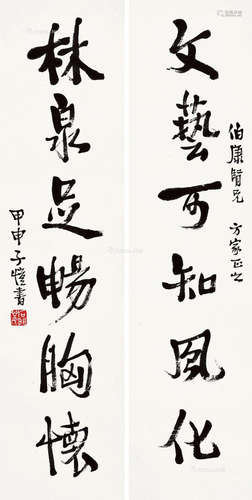 文藝可知風化
伯康賢兄 方家正之
林泉足暢胸懷
甲申子愷書